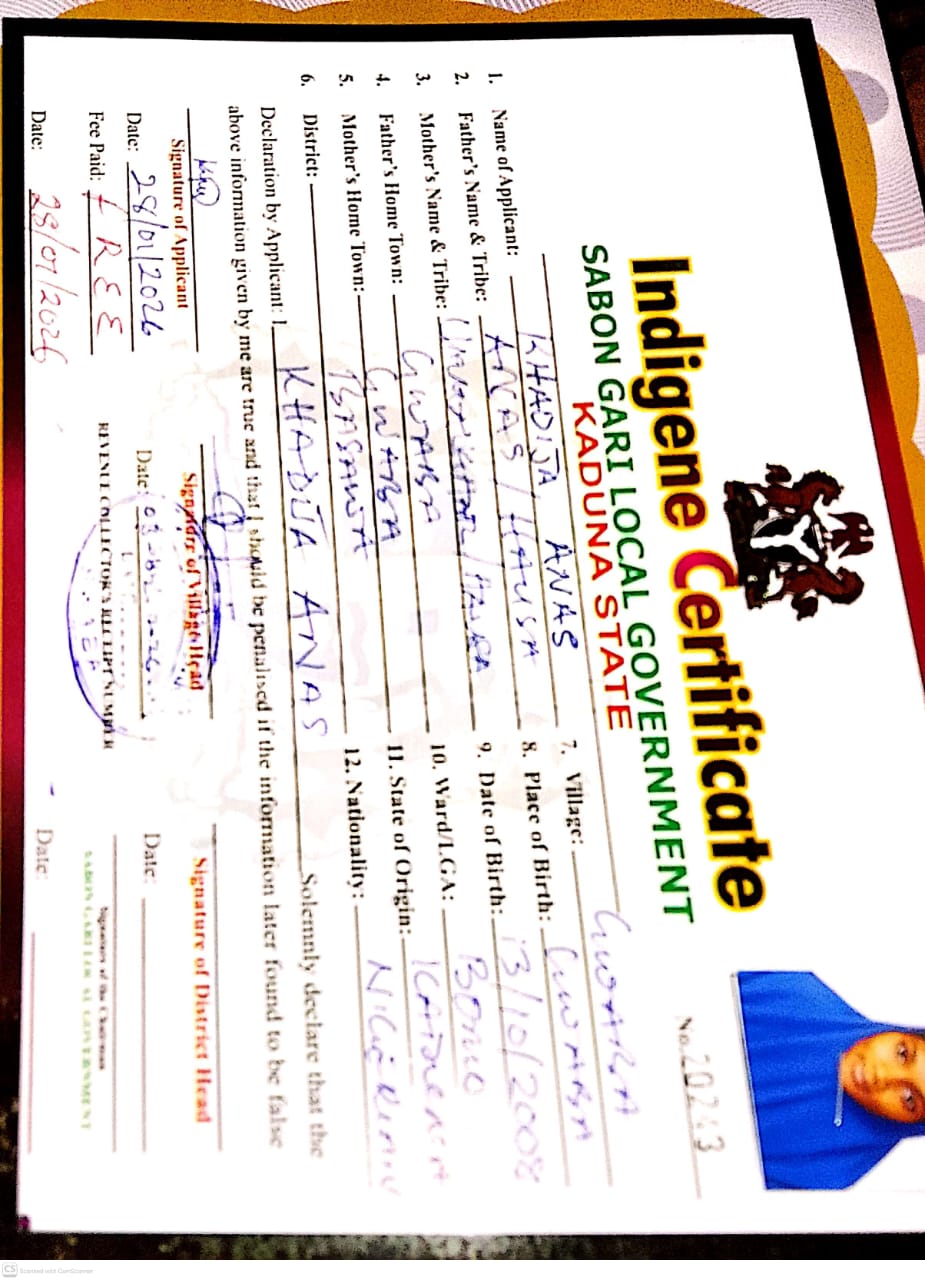 Indigene Certificate
SABON GARI LOCAL GOVERNMENT
KADUNA STATE
No.
1. Name of Applicant: KHADIJA ANAS
2. Father's Name & Tribe: ANAS / HAUSA
3. Mother's Name & Tribe: / HAUSA
4. Father's Home Town: GWARBA
5. Mother's Home Town: GWARBA
6. District: BASAWA
7. Village: GWARBA
8. Place of Birth: GWARBA
9. Date of Birth: 13/10/2008
10. Ward/LGA: BOMO
11. State of Origin: KADUNA
12. Nationality: NIGERIAN
Declaration by Applicant: I KHADIJA ANAS Solemnly declare that the
above information given by me are true and that I should be penalised if the information later found to be false
Signature of Applicant
Date: 28/01/2026
Fee Paid: FREE
Date: 28/01/2026
Signature of Village Head
Date:
REVENUE COLLECTOR'S RECEIPT NUMBER
Signature of District Head
Date:
Signature of the Chairman
SABON GARI LOCAL GOVERNMENT
Date:
CS Scanned with CamScanner